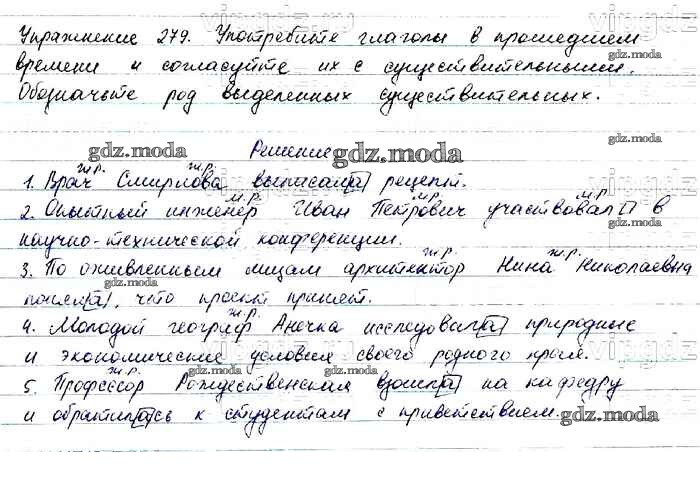 Упражнение 279. Употребите глаголы в прошедшем
времени и согласуйте их с существительными.
Обозначьте род выделенных существительных.
Решение
ж.р. ж.р.
1. Врач Смирнова выписал[а] рецепт.
м.р. м.р.
2. Опытный инженер Иван Петрович участвовал□ в
научно-технической конференции.
ж.р. ж.р.
3. По оживленным лицам архитектор Нина Николаевна
понял[а], что проект принят.
ж.р.
4. Молодой географ Анечка исследовал[а] природные
и экономические условия своего родного края.
ж.р.
5. Профессор Рождественская взошл[а] на кафедру
и обратил[а]сь к студентам с приветствием.
gdz.moda
gdz.moda
gdz.moda
gdz.moda
gdz.moda
gdz.moda
vipgdz.ru